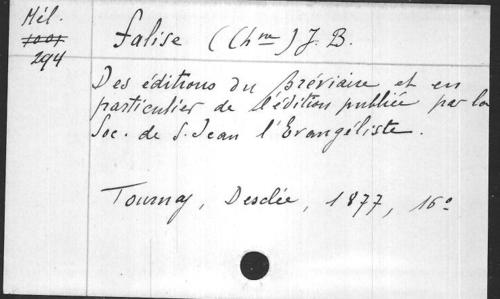 Mél.
1001
294
Falise (Chne) J. B.
Des éditions du Bréviaire et en
particulier de l'édition publiée par la
Soc. de S. Jean l'Evangéliste.
Tournay, Desclée, 1877, 16º